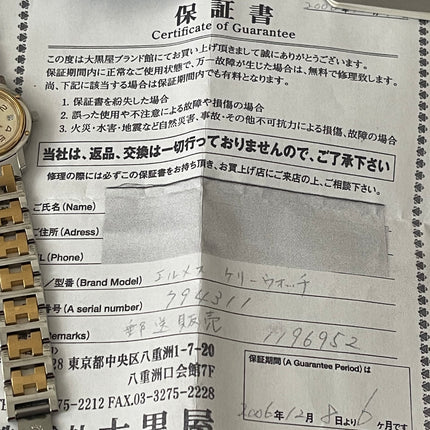 保証書
Certificate of Guarantee
この度は大黒屋ブランド館にてお買い上げ頂きまして誠にありがとうございます。
保証期間内に正常なご使用状態で、万一故障が生じた場合は、無料で修理致します。
尚、下記に該当する場合は保証期間内でも有料となります。
1. 保証書を紛失した場合
2. 誤った使用や不注意による故障や損傷の場合
3. 火災・水害・地震など自然災害、事故・その他不可抗力による損傷、故障の場合
当社は、返品、交換は一切行っておりませんので、ご了承下さい
修理の際には必ずこの保証書をお持ち頂き、お買上げ店にご来店の上、ご相談下さい。
ご氏名(Name)
ご住所(Adress)
EL(Phone)
/型番(Brand Model) エルメス ケリーウォッチ
番号(A serial number) 794311
marks) 郵送販売 1196952
28 東京都中央区八重洲1-7-20
八重洲口会館7F
75-2212 FAX.03-3275-2228
大黒屋
保証期間(A Guarantee Period)は
2006年12月8日より6
ヶ月です。